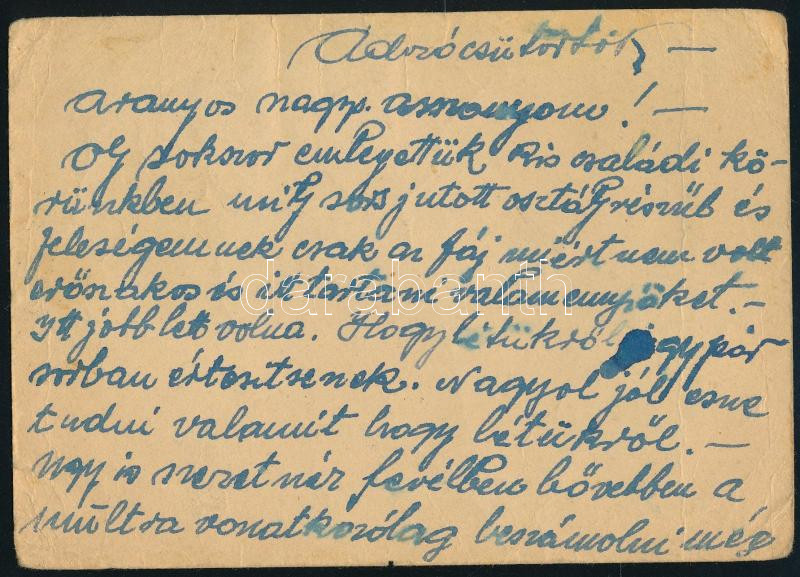 Adorócsütörtök, —
aranyos nagys. asszonyom! —
Oly sokszor emlegettük kis családi kö-
rünkben mily sors jutott osztályrészüb és
feleségemnek csak az fáj miért nem volt
erőszakos és itt tartani valamennyiöket. —
Itt jobb lett volna. Hogylétükről egy pár
sorban értesítsenek. Nagyol jól esne
tudni valamit hogy létükről. —
Ugy is szeretnéz levélben bővebben a
multra vonatkozólag beszámolni még
darabanth